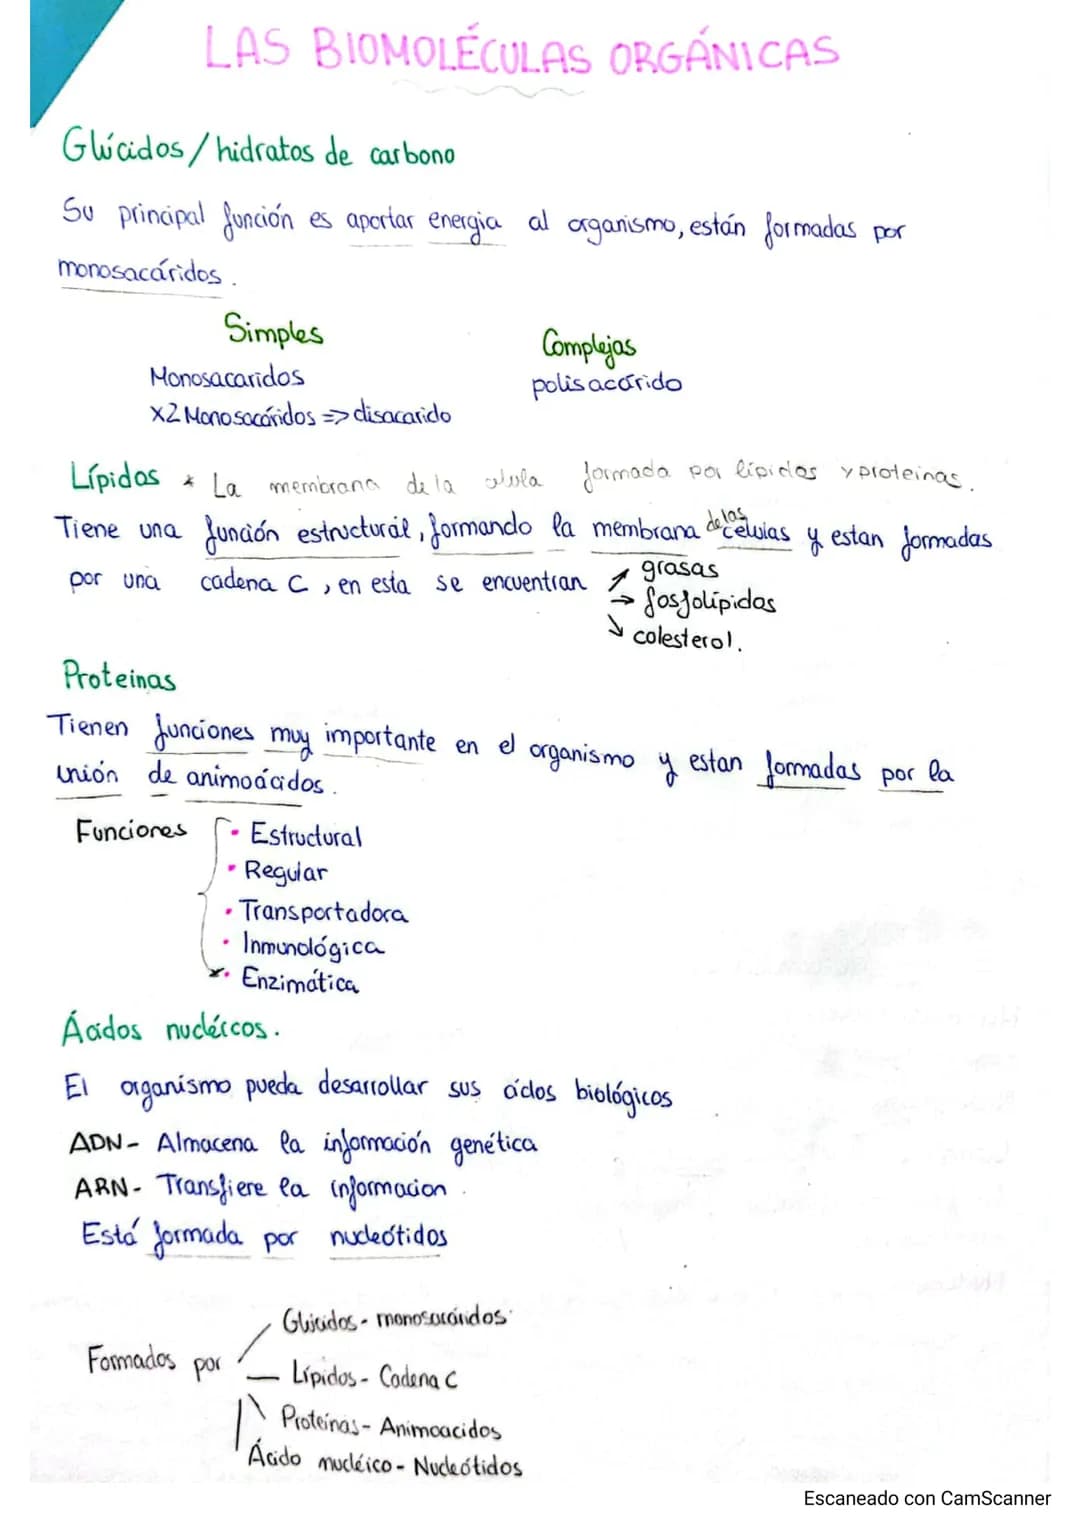 LAS BIOMOLÉCULAS ORGÁNICAS
Glúcidos / hidratos de carbono
Su principal función es aportar energia al organismo, están formadas por
monosacáridos.
Simples
Complejas
Monosacaridos
polisacárido
x2 Monosacáridos => disacarido
Lípidos * La membrana de la celula formada por lípidos y proteinas.
Tiene una función estructural, formando la membrana de las células y estan formadas
por una cadena C, en esta se encuentran ↗ grasas
→ fosfolípidos
↘ colesterol.
Proteinas
Tienen funciones muy importante en el organismo y estan formadas por la
unión de animoácidos.
Funciones
• Estructural
• Regular
• Transportadora
• Inmunológica
• Enzimática
Ácidos nucléicos.
El organismo pueda desarrollar sus ciclos biológicos
ADN - Almacena la información genética
ARN - Transfiere la informacion
Está formada por nucleótidos
Glúcidos - monosacáridos
Formados por
Lípidos - Cadena C
Proteínas - Animoacidos
Ácido nucléico - Nucleótidos
Escaneado con CamScanner